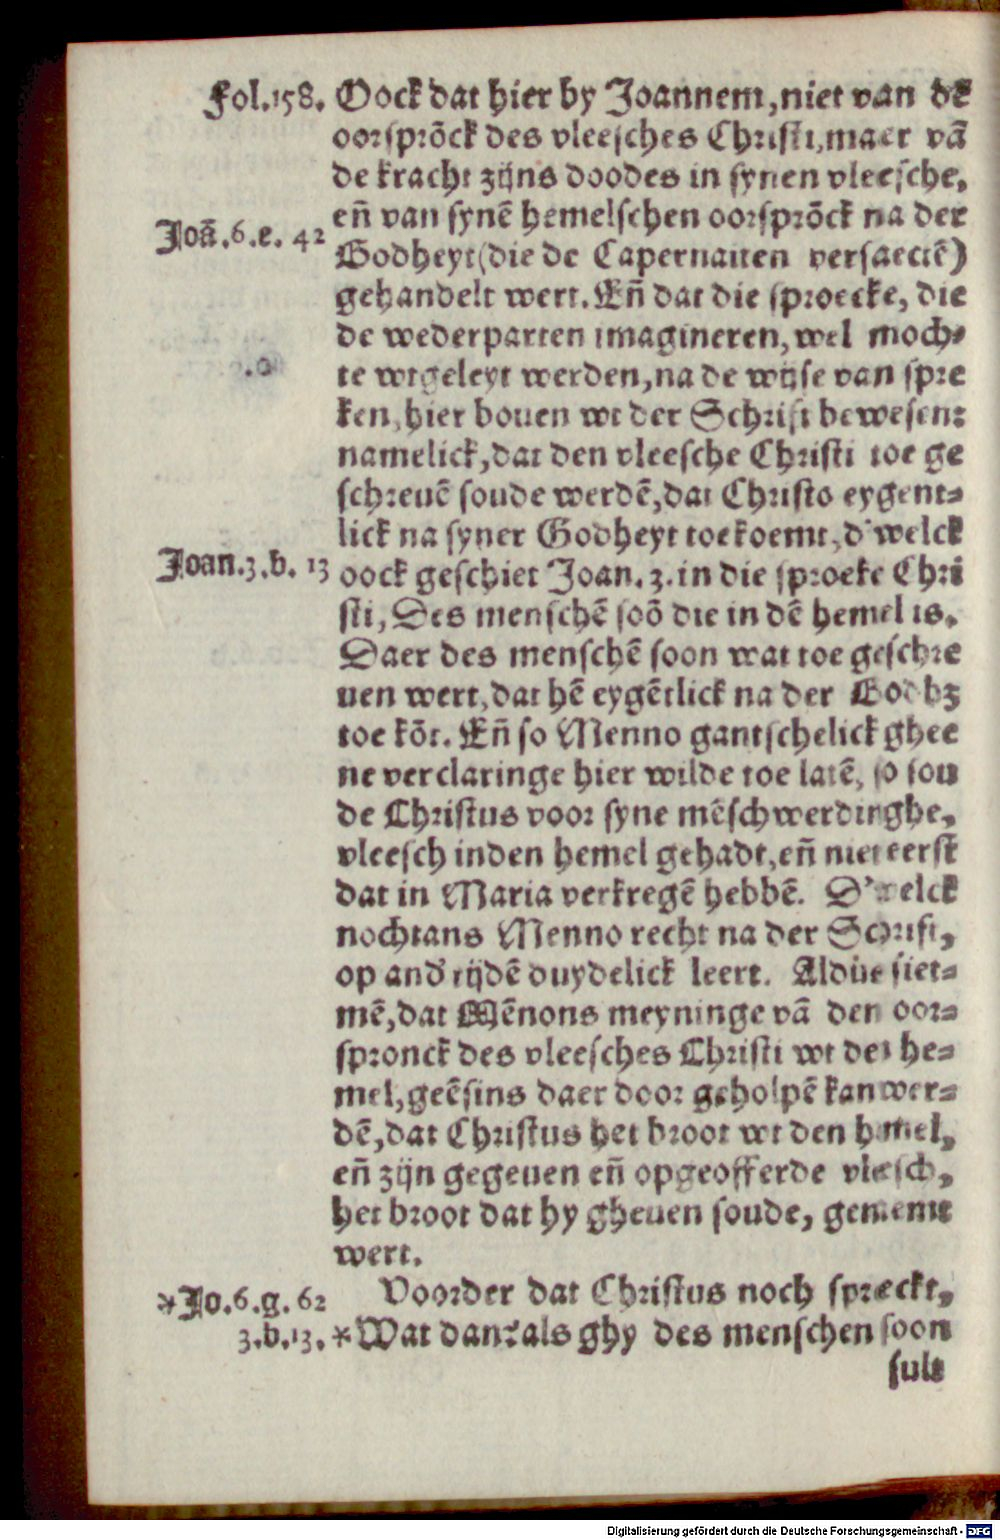 Fol.158. Oock dat hier by Joannem, niet van de
oorsprõck des vleesches Christi, maer vã
de kracht zijns doodes in synen vleesche,
eñ van synẽ hemelschen oorsprõck na der
Joã.6.e. 42
Godheyt (die de Capernaiten versaectẽ)
gehandelt wert. Eñ dat die sproecke, die
de wederparten imagineren, wel moch⸗
te wtgeleyt werden, na de wijse van spre
ken, hier bouen wt der Schrift bewesen:
namelick, dat den vleesche Christi toe ge
schreuẽ soude werdẽ, dat Christo eygent⸗
lick na syner Godheyt toekoemt, d'welck
Joan.3.b. 13 oock geschiet Joan. 3. in die sproeke Chri
sti, Des menschẽ soõ die in dẽ hemel is.
Daer des menschẽ soon wat toe geschre
uen wert, dat hẽ eygẽtlick na der Godhꝫ
toe kõt. Eñ so Menno gantschelick ghee
ne verclaringe hier wilde toe latẽ, so sou
de Christus voor syne mẽschwerdinghe,
vleesch inden hemel gehadt, eñ niet eerst
dat in Maria verkregẽ hebbẽ. D'welck
nochtans Menno recht na der Schrift,
op and' tijdẽ duydelick leert. Aldus siet⸗
mẽ, dat Mẽnons meyninge vã den oor⸗
spronck des vleesches Christi wt den he⸗
mel, geẽsins daer door geholpẽ kan wer⸗
dẽ, dat Christus het broot wt den hemel,
eñ zijn gegeuen eñ opgeofferde vleesch,
het broot dat hy gheuen soude, genemt
wert.
*Jo.6.g. 62 Voorder dat Christus noch spreckt,
3.b.13. *Wat dan? als ghy des menschen soon
sult
Digitalisierung gefördert durch die Deutsche Forschungsgemeinschaft - DFG